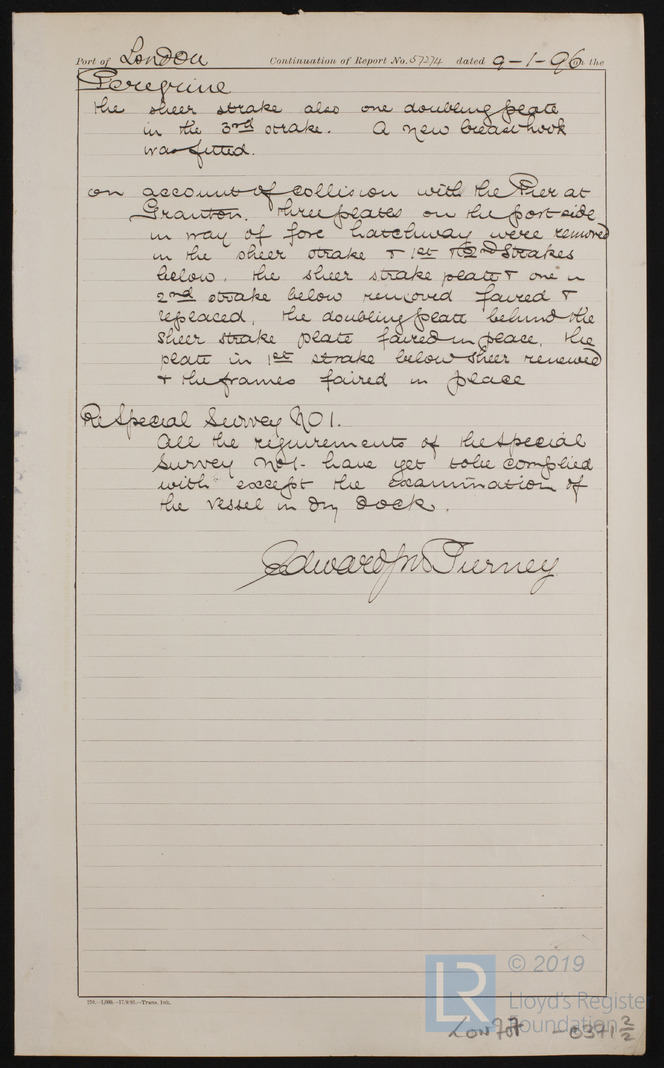 Port of London Continuation of Report No. 57274 dated 9-1-96 the
Peregrine
the sheer strake also one doubling plate
in the 3rd strake. A new breasthook
was fitted.
on account of collision with the Pier at
Granton. three plates on the port side
in way of fore hatchway were removed
in the sheer strake & 1st & 2nd strakes
below. the sheer strake plate & one in
2nd strake below removed faired &
replaced, the doubling plate behind the
sheer strake plate faired in peace, the
plate in 1st strake below sheer renewed
& the frames faired in place
Re Special Survey No 1.
All the requirements of the special
Survey No 1- have yet to be complied
with except the examination of
the vessel in dry dock.
Edward Tierney
250.—5,000.—17/9/95.—Trans. Ink.
LR © 2019
Lloyd's Register
Foundation
LON - 0371 2/2